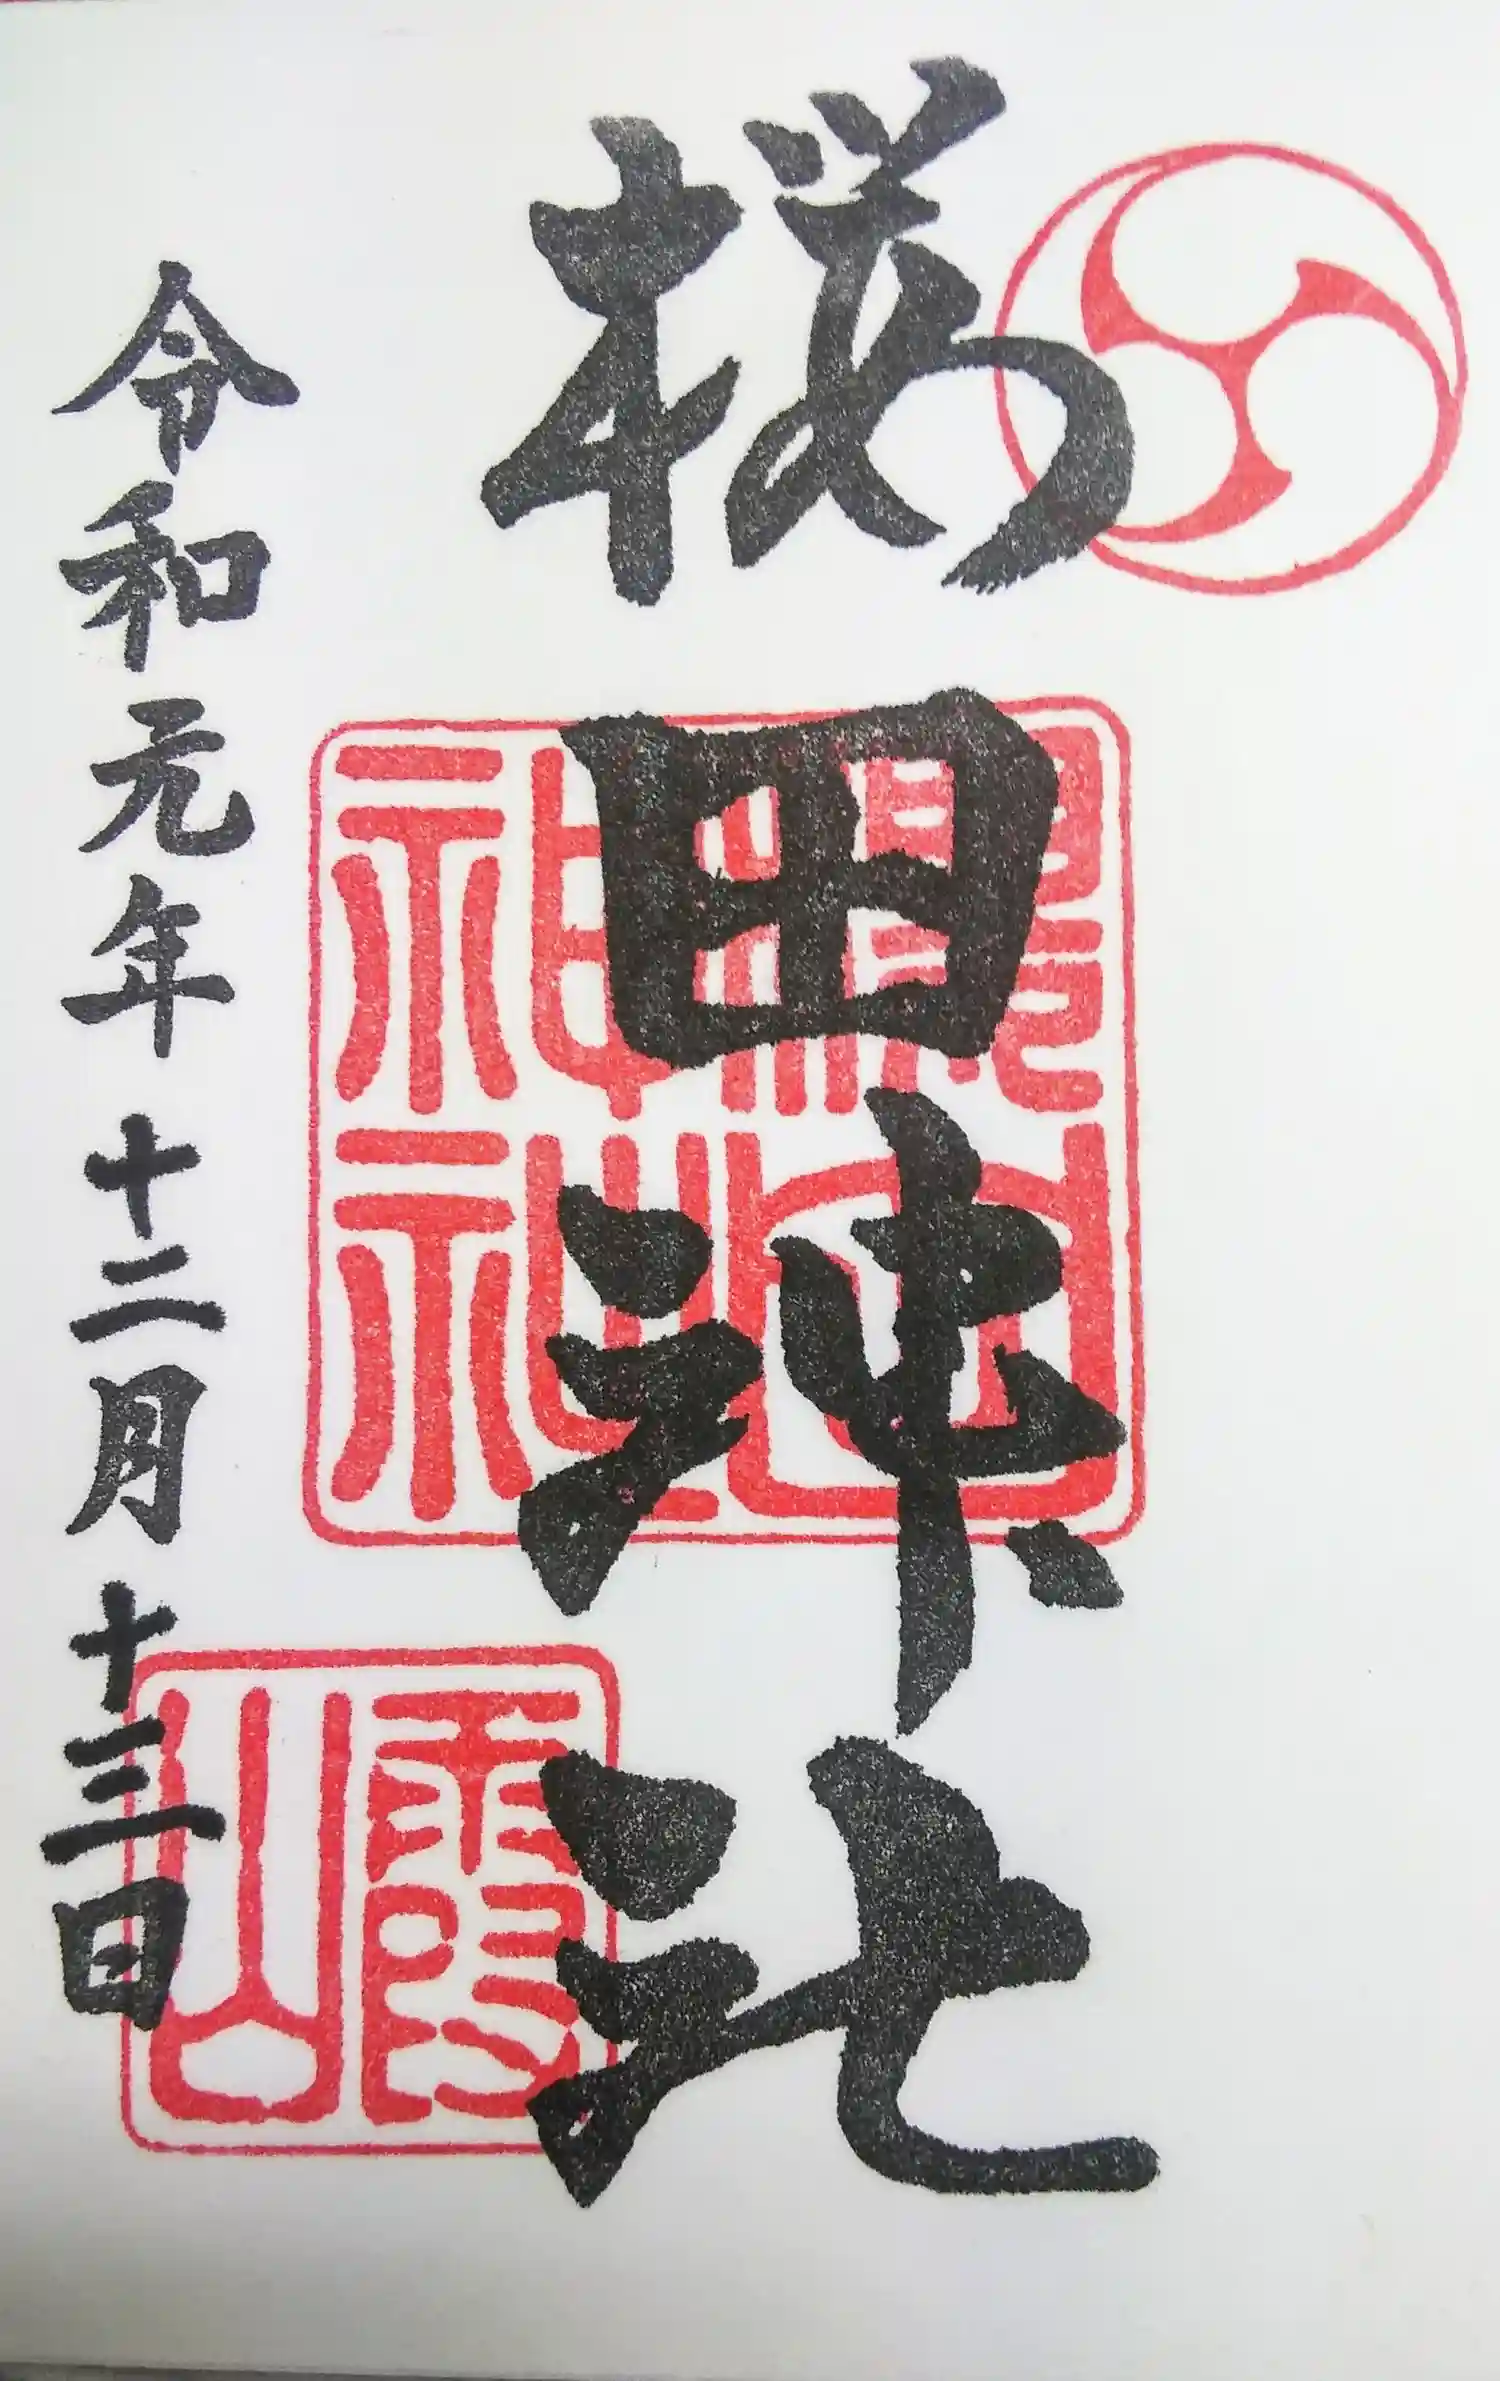 桜田神社
櫻田神社
霞山
令和元年十二月十三日